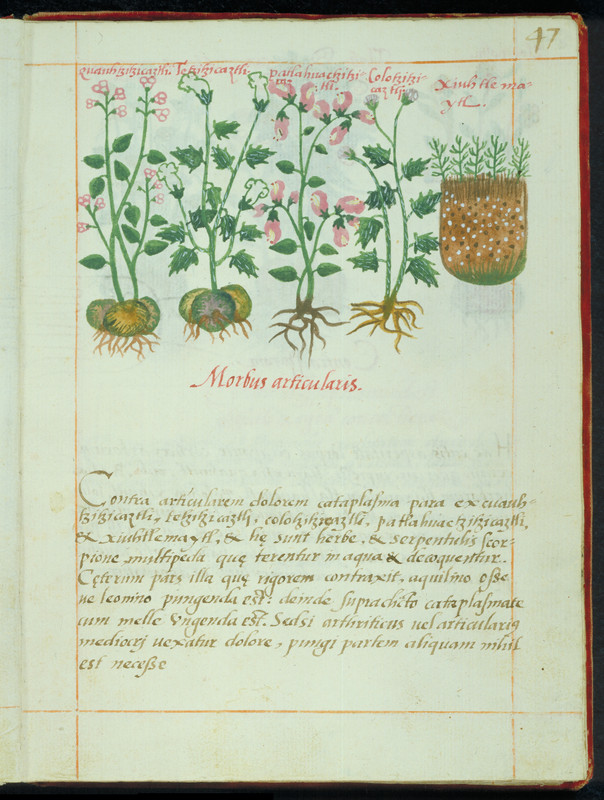 47
quauhtzitzicaztli. Tetzitzicaztli. patlahuactzitzi- Colotzitzi- Xiuhtlema-
caztli. caztli. ytl.
Morbus articularis.
Contra articularem dolorem cataplasma para ex cuauh-
tzitzicaztli, tetzitzicaztli, colotzitzicaztli, patlahuactzitzicaztli,
& xiuhtlemaytl, & hę sunt herbę, & serpentulis scor-
pione, multipeda quę terentur in aqua & decoquentur.
Cęterùm pars illa quę rigorem contraxit, aquilino osse
ue leonino pungenda est: deinde supradicto cataplasmate
cum melle ungenda est. Sed si arthriticus vel articularius
mediocri uexatur dolore, pungi partem aliquam nihil
est necesse